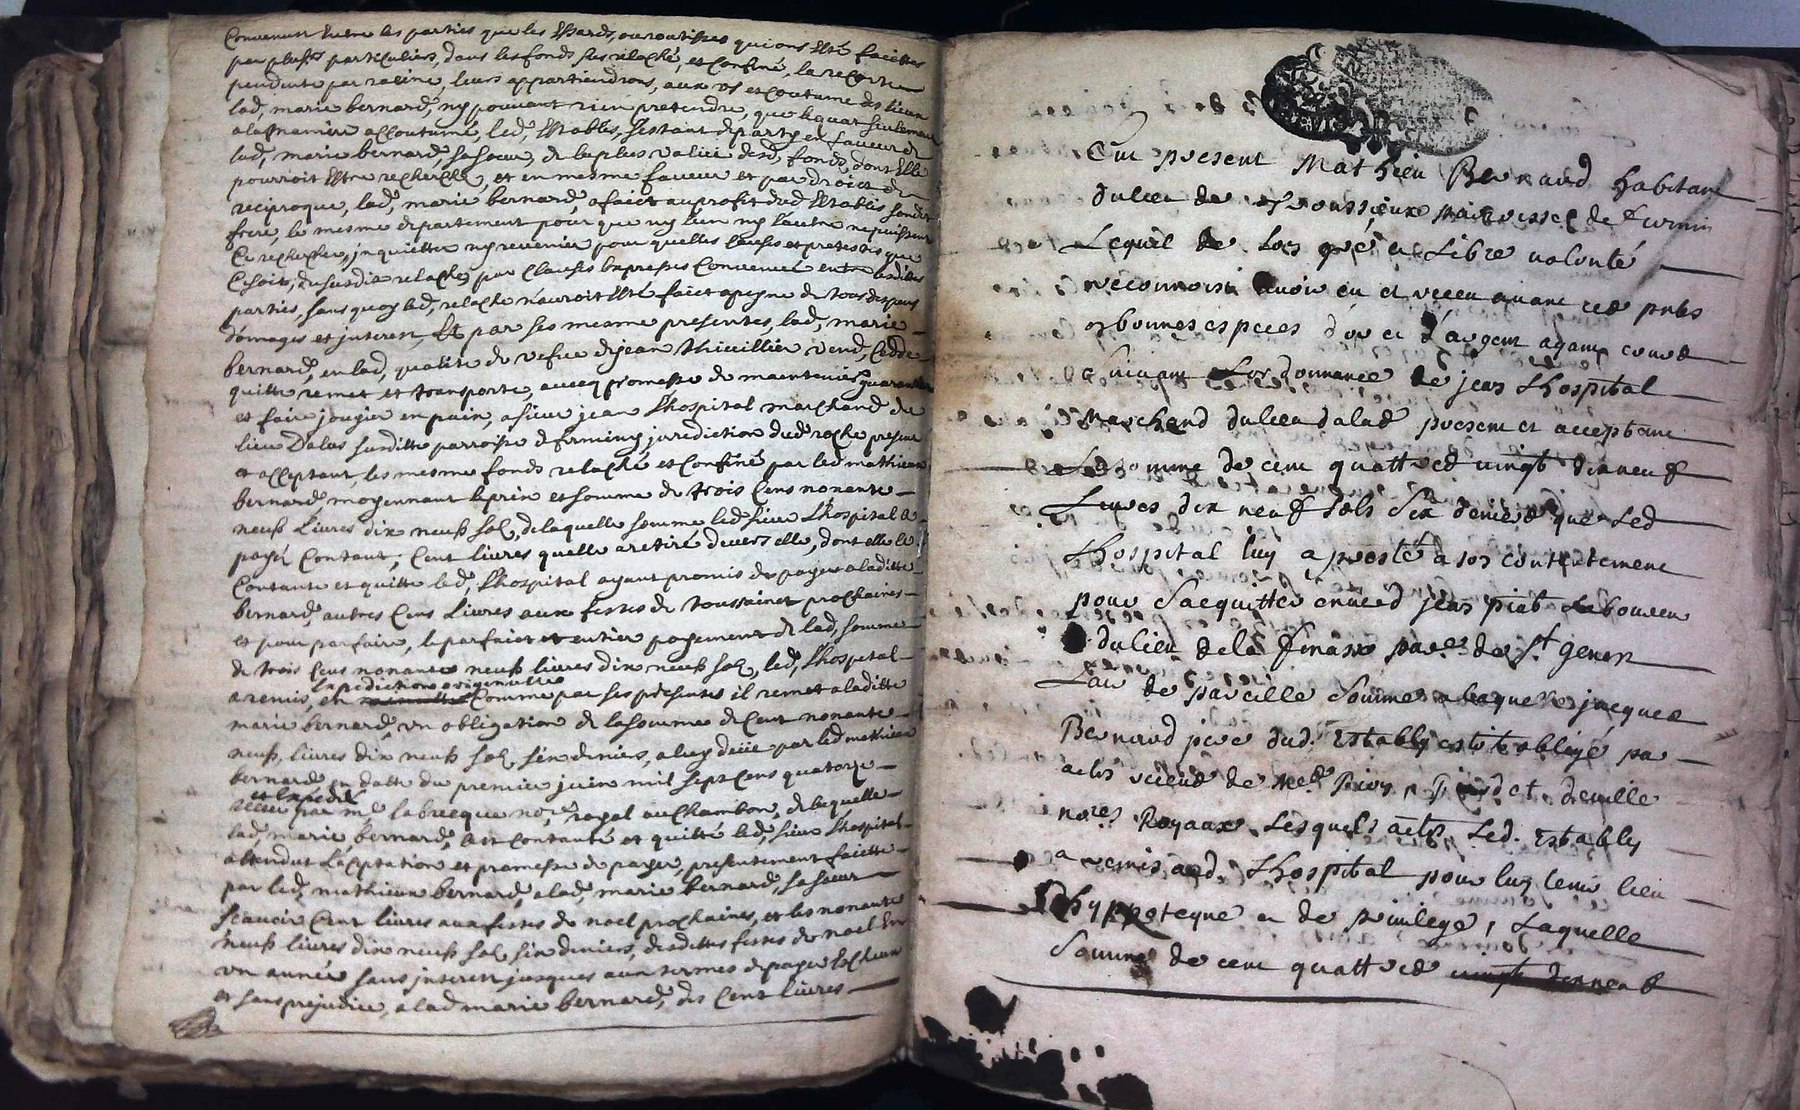 Convenust Entre les parties que les Essards, ou routisses qui ont esté faicttes
par plusrs particuliers, dans les fonds sus relaché, et Confiné, la recorte
pendente par racine, leurs appartiendrons, aux us et coutume des lieux
lad, marie bernard, ny pouvant rien pretendre, que le quar seulement
a la maniere accoutumé, led, Estables, s'estant departy en faveur de
lad, marie bernard, sa soeur, de la plus value desd, fonds, dont Elle
pourroit Estre recherché, et en mesme faveur et par droict de
reciproque, lad, marie bernard, a faict au profit dud Establis son dt
frere, le mesme departement pour que ny l'un ny l'autre ne puissent
Ce rechercher, inquietter ny revenir pour quelles Causes et pretextes que
Ce soit, du susdit relaché, par Clauses Expresses Convenue entre lesdites
parties, sans quoy led, relaché n'auroit Esté faict a peyne de tous despans
domages et interest, Et par ses mesme presentes, lad, marie
bernard, en lad, qualité de vefve de jean thivillier vend, Cedde
quitte remet et transporte, avecq promesse de maintenir, guarentir
et faire jouyir en paix, a sieur jean L'hospital marchand du
lieu Dalas susditte parroisse de firminy, jurediction dud, roche present
et acceptant, les mesme fonds relaché et Confiné par led mathieu
bernard moyennant le prix et somme de trois Cens nonante
neuf Livres dix neuf sols, de laquelle somme led sieur L'hospital a
payé Contant, Cent livres quelle a retiré devers elle, dont elle le
Contante et quitte led, L'hospital ayant promis de payer a laditte
bernard, autres Cens Livres aux festes de Toussainct prochaines
et pour parfaire, le parfaict et entier payement de lad, somme
de trois Cens nonante neuf livres dix neuf sols, led, L'hospital
a remis, en Expedictions originelle Comme par ses presentes il remet a laditte
marie bernard, un obligation de la somme de Cent nonante
neuf, livres dix neuf sols six deniers, a luy deüe par led mathieu
bernard en datte du premier juin mil sept Cens quatorze
receu et Expedié par me labrecque nore royal au Chambon, de laquelle
lad, marie bernard, a Contanté et quitté led, sieur L'hospital
attendut L'acceptation et promesse de payer, presentement faictte
par led, mathieu bernard, a lad, marie bernard, sa soeur
scavoir Cent livres aux festes de noel prochaines, et les nonante
neuf livres dix neuf sols six deniers, desdittes festes de noel En
un année sans interest, jusques aux termes de payer Escheux
et sans prejudice, a lad marie bernard, des Cent livres
Fut present Mathieu Bernard habitant
du lieu de paroisse de firmin
Lequel de son gré et Libre volonté
reconnoist avoir eu et receu avant ces pntes
en bonnes especes d'or et d'argent ayant cours
suivant L'ordonnance de jean Lhospital
Marchand du lieu dalas present et acceptant
La somme de cent quattred vingt dix neuf
Livres dix neuf sols six deniers que Led
Lhospital luy a presté a son contentement
pour sacquitter envers jean piat Laboureur
du lieu de la parre de St genest
Lair de pareille somme a laquelle jacques
Bernard pere dud. Estably estoit obligé par
actes receus de Med et deville
nores Royaux Lesquels actes Led. Estably
a remis aud. Lhospital pour luy tenir lieu
D'hyppoteque et de privilege, Laquelle
Somme de cent quattred vingt dix neuf